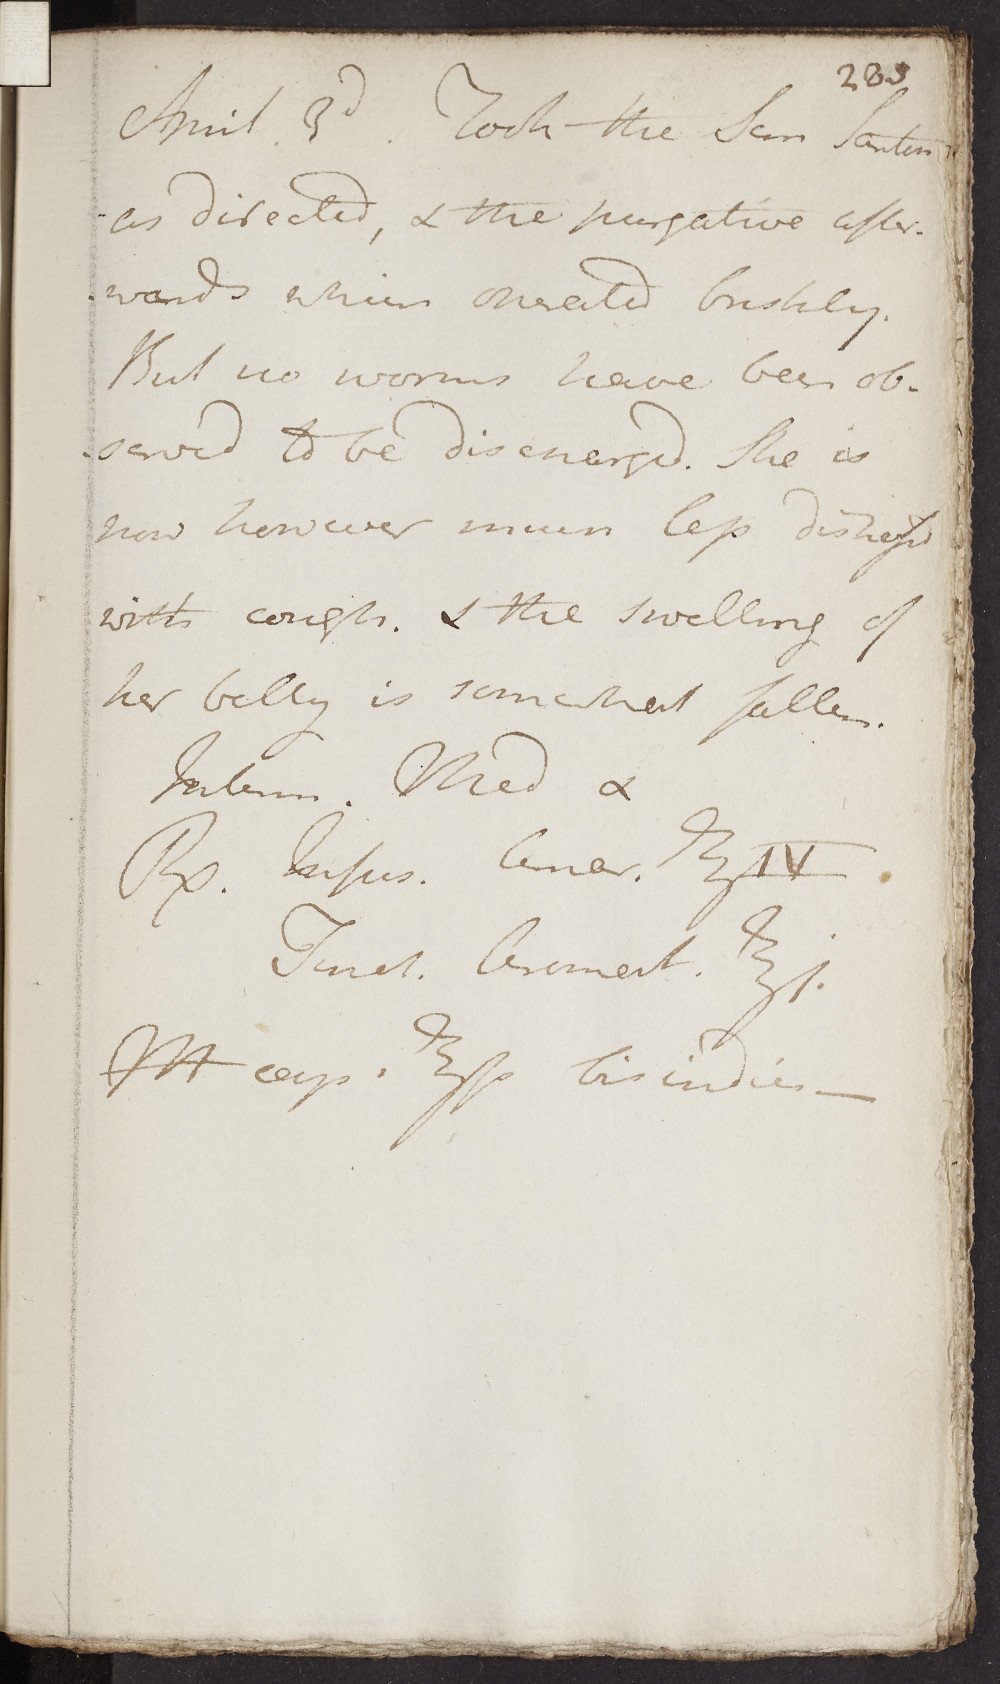 283
April 3d. Took the Sem Santon
as directed, & the purgative after-
wards which operated briskly.
But no worms have been ob-
served to be discharged. She is
now however much less distress'd
with cough. & the swelling of
her belly is somewhat fallen.
Interm. Med &
Rx. Infus. Amar. ℥IV
Tinct. Aromat. ℥j.
M cap. ℥ß bis indies—